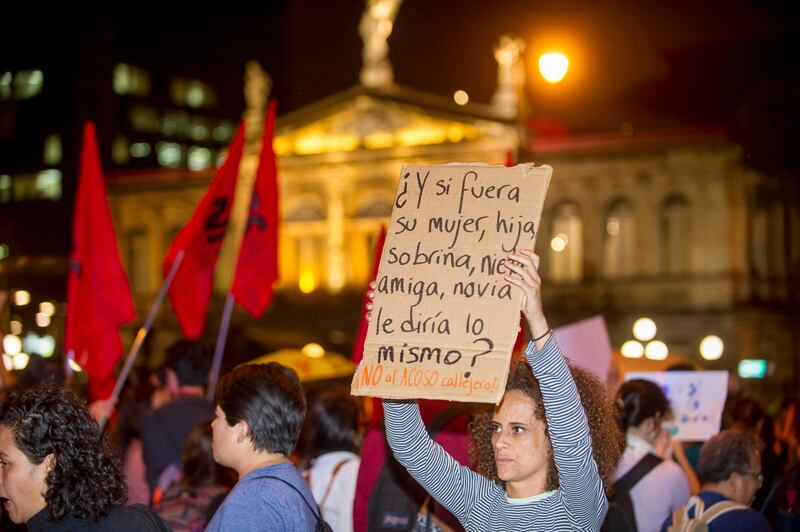 ¿Y si fuera
su mujer, hija
sobrina,
amiga, novia
le diría lo
mismo?
¡NO al ACOSO callejero!